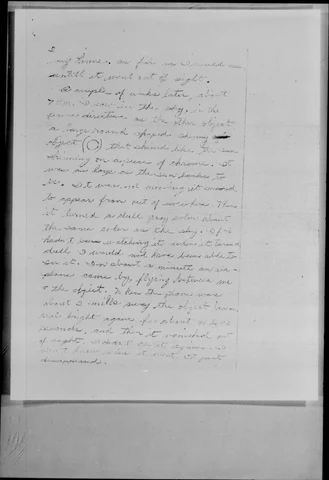 2
my house. as far as I could see
untill it went out of sight.
A couple of weeks later, about
I saw in the sky, in the
same direction as the other object
a large round shaped shiny
object that shined like the sun
shining on a piece of chrome. It
was as large as the sun looks to
be. It was not moving it seemed
to appear from out of nowhere. Then
it turned a dull gray color about
the same color as the sky. If I
hadn't been watching it when it turned
dull I would not have been able to
see it. In about a minute an air-
plane came by, flying between me
& the object. When the plane was
about 2 miles away the object became
bright again for about
seconds, and then it vanished out
of sight. I didn't see it again. I
don't know where it went, it just
disappeared.